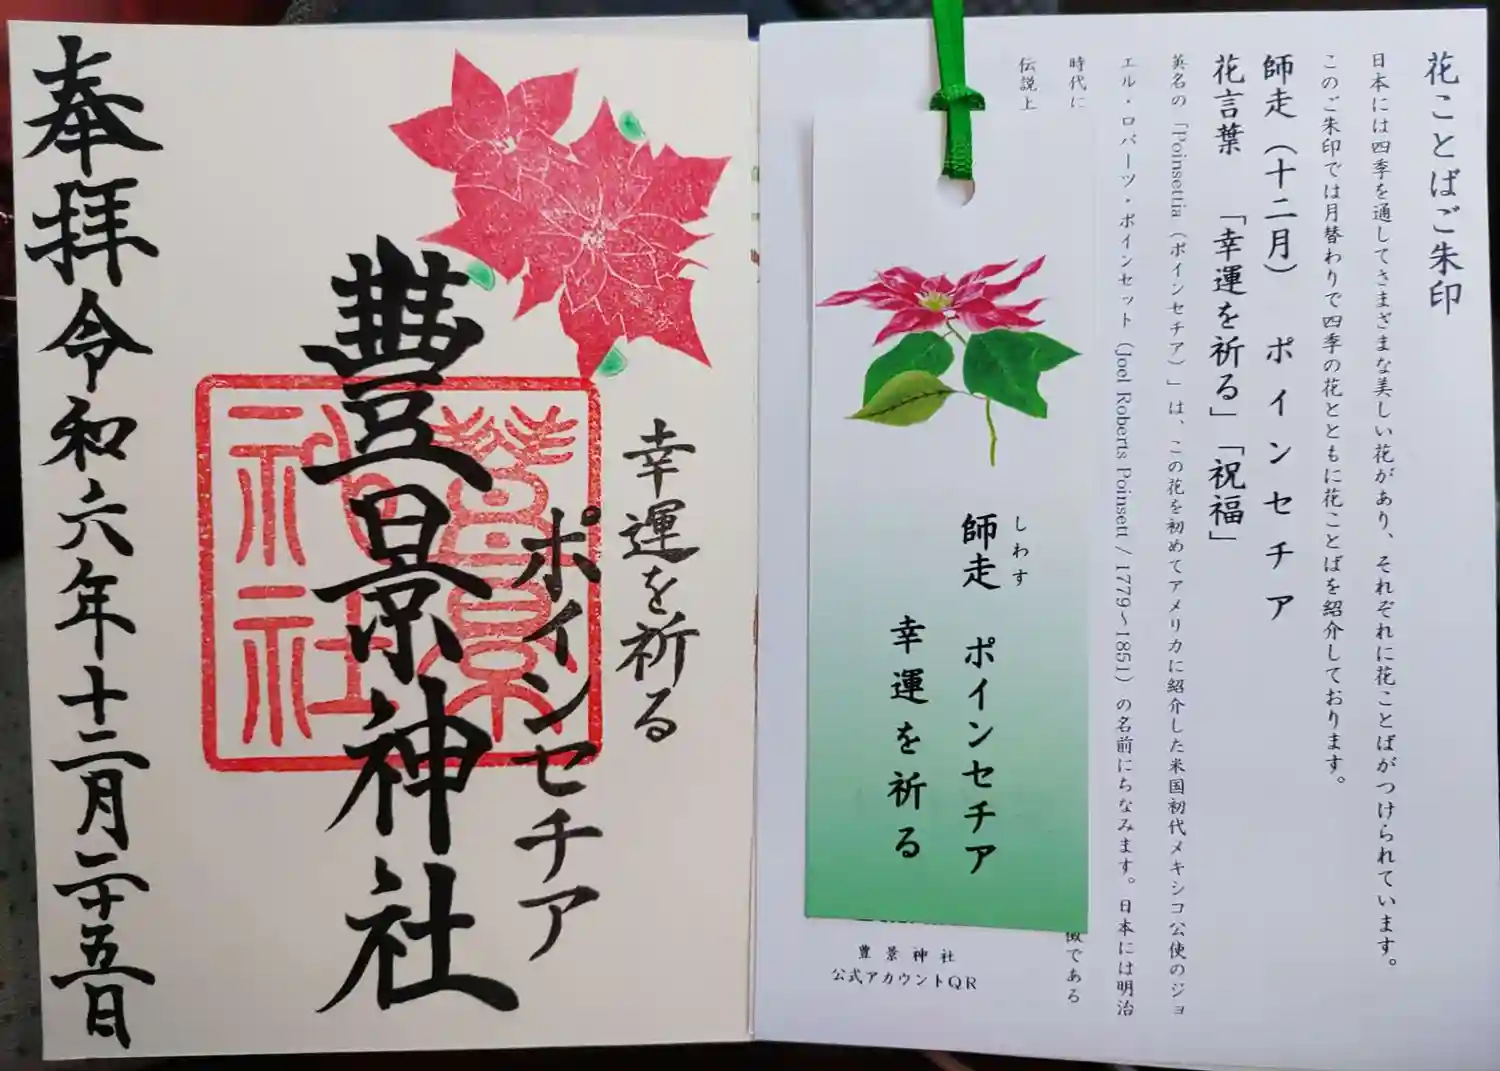 花ことばご朱印
日本には四季を通してさまざまな美しい花があり、それぞれに花ことばがつけられています。
このご朱印では月替わりで四季の花とともに花ことばを紹介しております。
師走（十二月） ポインセチア
花言葉 「幸運を祈る」「祝福」
英名の「Poinsettia（ポインセチア）」は、この花を初めてアメリカに紹介した米国初代メキシコ公使のジョ
エル・ロバーツ・ポインセット（Joel Roberts Poinsett / 1779～1851）の名前にちなみます。日本には明治
時代に
である
伝説上
しわす
師走 ポインセチア
幸運を祈る
豊景神社
公式アカウントQR
幸運を祈る
ポインセチア
豐景神社
豐景
神社
奉拝 令和六年十二月二十五日